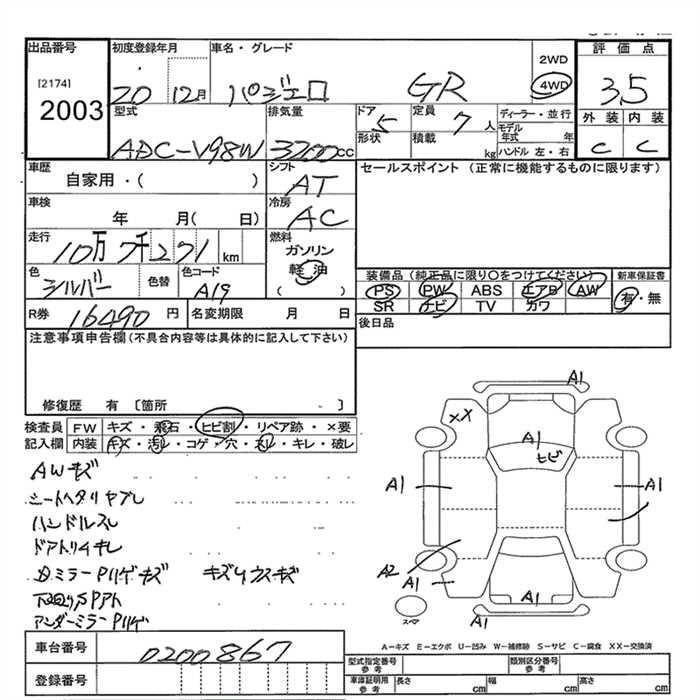 出品番号 初度登録年月 車名・グレード 評価点
[2174] 2003
20 12月 パジェロ GR 2WD 4WD 3.5
外装 内装
C C
型式 排気量 ドア 定員 ディーラー・並行
ADC-V98W 3200cc 5 7人 モデル年式 年
形状 積載 kg ハンドル 左・右
車歴 シフト セールスポイント (正常に機能するものに限ります)
自家用・( ) AT
車検 冷房
年 月( 日) AC
走行 燃料
10万7千271km ガソリン
軽油
( )
色 色替 色コード
シルバー A19
装備品(純正品に限り○をつけてください) 新車保証書
PS PW ABS エアB AW 有・無
SR ナビ TV カワ
R券 16490円 名変期限 月 日
後日品
注意事項申告欄(不具合内容等は具体的に記入して下さい)
修復歴 有 〔箇所 〕
検査員 FW キズ・飛石・ヒビ割・リペア跡・×要
記入欄 内装 キズ・汚レ・コゲ・穴・スレ・キレ・破レ
AWキズ
シートヘタリヤブレ
ハンドルスレ
ドアトリムキレ
キズ キズウスキズ
アンダーミラー
A1
XX
A1
ヒビ
A1 A1
A2
A1
A1
A1
スペア
A-キズ E-エクボ U-凹み W-補修跡 S-サビ C-腐食 XX-交換済
車台番号 0200867
登録番号
型式指定番号 参考 類別区分番号 参考
車庫証明用 参考 長さ cm 幅 cm 高さ cm